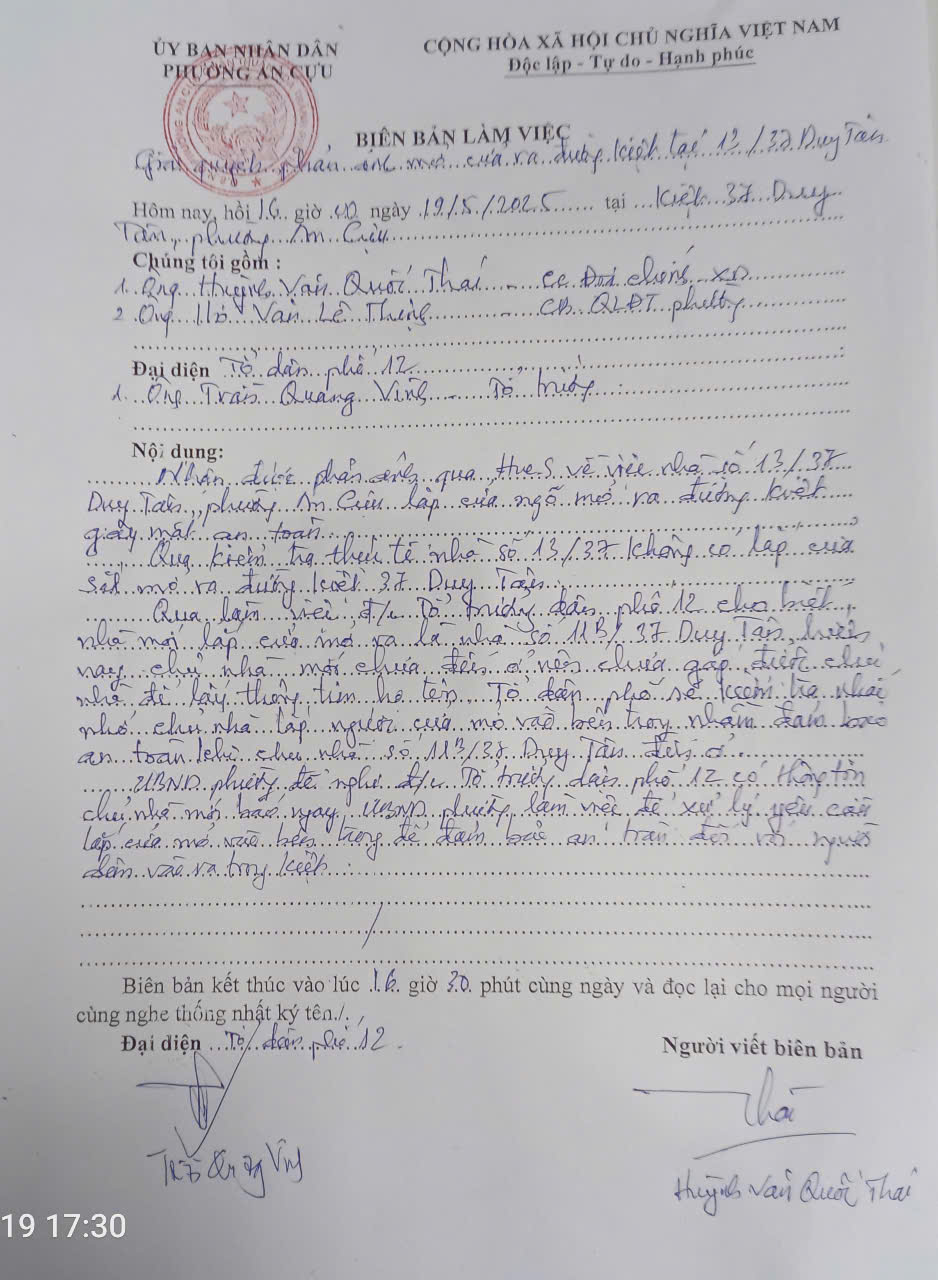 ỦY BAN NHÂN DÂN
PHƯỜNG AN CỰU
CỘNG HÒA XÃ HỘI CHỦ NGHĨA VIỆT NAM
Độc lập - Tự do - Hạnh phúc
BIÊN BẢN LÀM VIỆC
Giải quyết phản ánh mở cửa ra đường kiệt tại 13/37 Duy Tân
Hôm nay, hồi 16 giờ 00 ngày 19/5/2025 tại Kiệt 37 Duy
Tân, phường An Cựu
Chúng tôi gồm :
1. Ông Huỳnh Văn Quốc Thái - CC Địa chính XD
2. Ông Hồ Văn Lê - CB. QLĐT phường
Đại diện Tổ dân phố 12 :
1. Ông Trần Quang Vinh - Tổ trưởng :
Nội dung:
Nhận được phản ánh qua Hue S về việc nhà số 13/37
Duy Tân, phường An Cựu lắp cửa ngõ mở ra đường kiệt
gây mất an toàn
Qua kiểm tra thực tế nhà số 13/37 không có lắp cửa
sắt mở ra đường kiệt 37 Duy Tân
Qua làm việc đ/c Tổ trưởng dân phố 12 cho biết,
nhà mới lắp cửa mở ra là nhà số 11B/37 Duy Tân, hiện
nay chủ nhà mới chưa đến ở nên chưa gặp được chủ
nhà để lấy thông tin họ tên. Tổ dân phố sẽ kiểm tra nhắc
nhở chủ nhà lắp ngược cửa mở vào bên trong nhằm đảm bảo
an toàn khi chủ nhà số 11B/37 Duy Tân đến ở.
UBND phường đề nghị đ/c Tổ trưởng dân phố 12 có thông tin
chủ nhà mới báo ngay UBND phường làm việc để xử lý yêu cầu
lắp cửa mở vào bên trong để đảm bảo an toàn đối với người
dân vào ra trong kiệt.
Biên bản kết thúc vào lúc 16 giờ 30 phút cùng ngày và đọc lại cho mọi người
cùng nghe thống nhất ký tên./.
Đại diện Tổ dân phố 12
Người viết biên bản
Thái
Trần Quang Vinh
Huỳnh Văn Quốc Thái
19 17:30